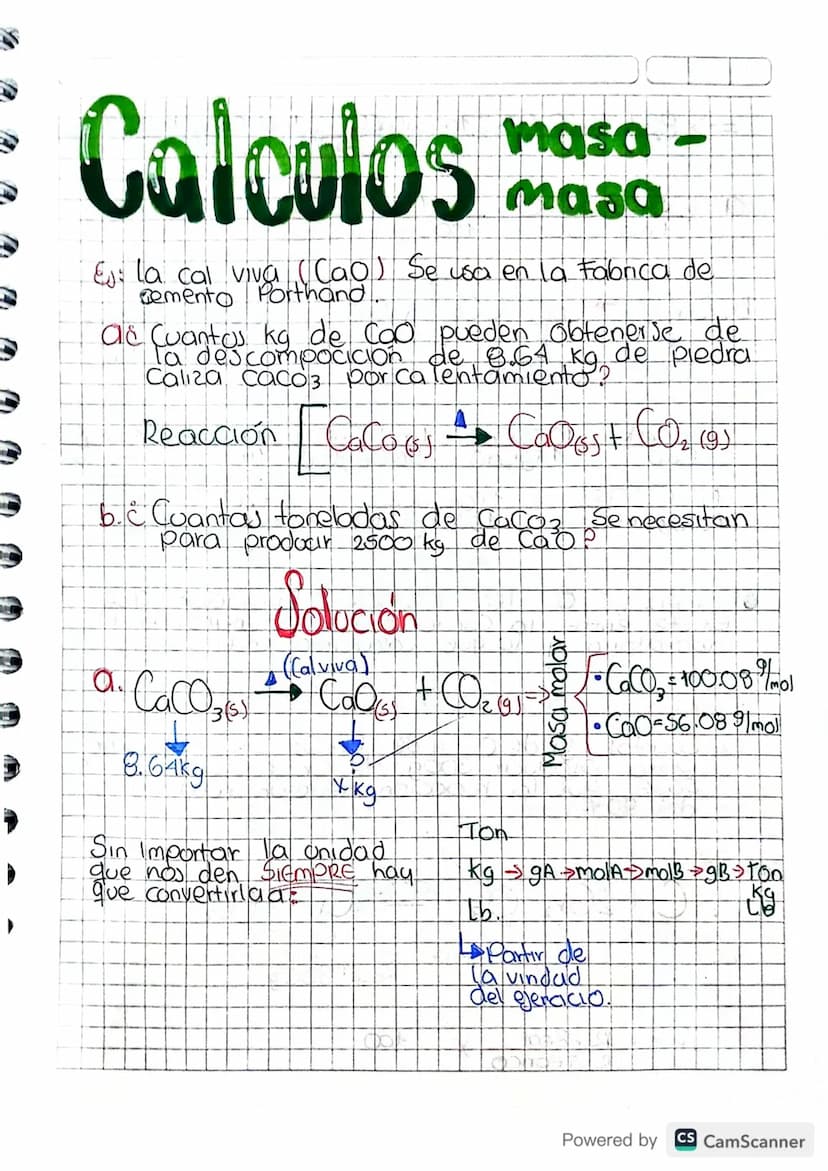 Calculos masa -
masa
Ej: la cal viva (CaO) Se usa en la Fabrica de
cemento Porthand.
a¿ Cuantos kg de CaO pueden obtenerse de
la descompocición de 8.64 kg de piedra
Caliza CaCO3 por calentamiento?
Reacción [ CaCo(s) Δ→ CaO(s) + CO2 (g)
b.¿ Cuantas toneladas de CaCO3 Se necesitan
para producir 2500 kg de CaO?
Solución
a. CaCO3(s) Δ→ (Cal viva) CaO(s) + CO2(g) ⇒ Masa molar
• CaCO3 = 100.08 g/mol
• CaO = 56.08 g/mol
8.64kg
?
x kg
Sin Importar la unidad
que nos den SIEMPRE hay
que convertirla a:
Ton
kg → gA → molA → molB → gB → Ton
Kg
Lb
Lb.
↳ Partir de
la vindad
del ejercicio.
Powered by CS CamScanner